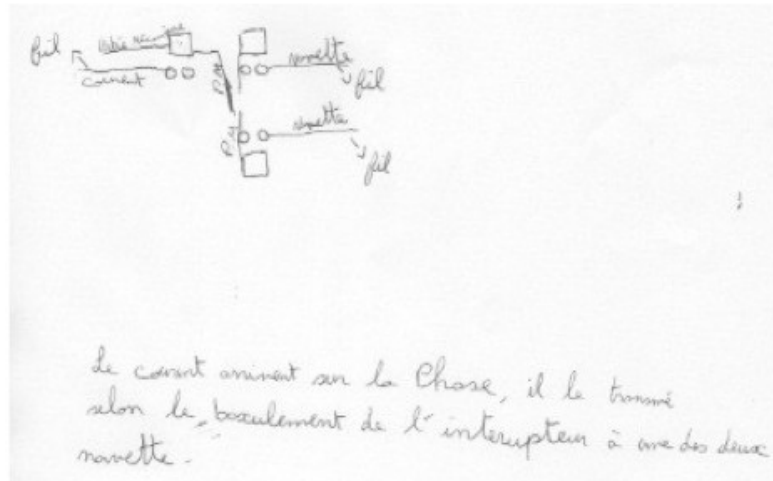 fil
courant
navette
fil
P.M
navette
fil
P.M
Le courant arrivent sur la Phase, il le transmé
selon le, basculement de l'interupteur à une des deux
navette.